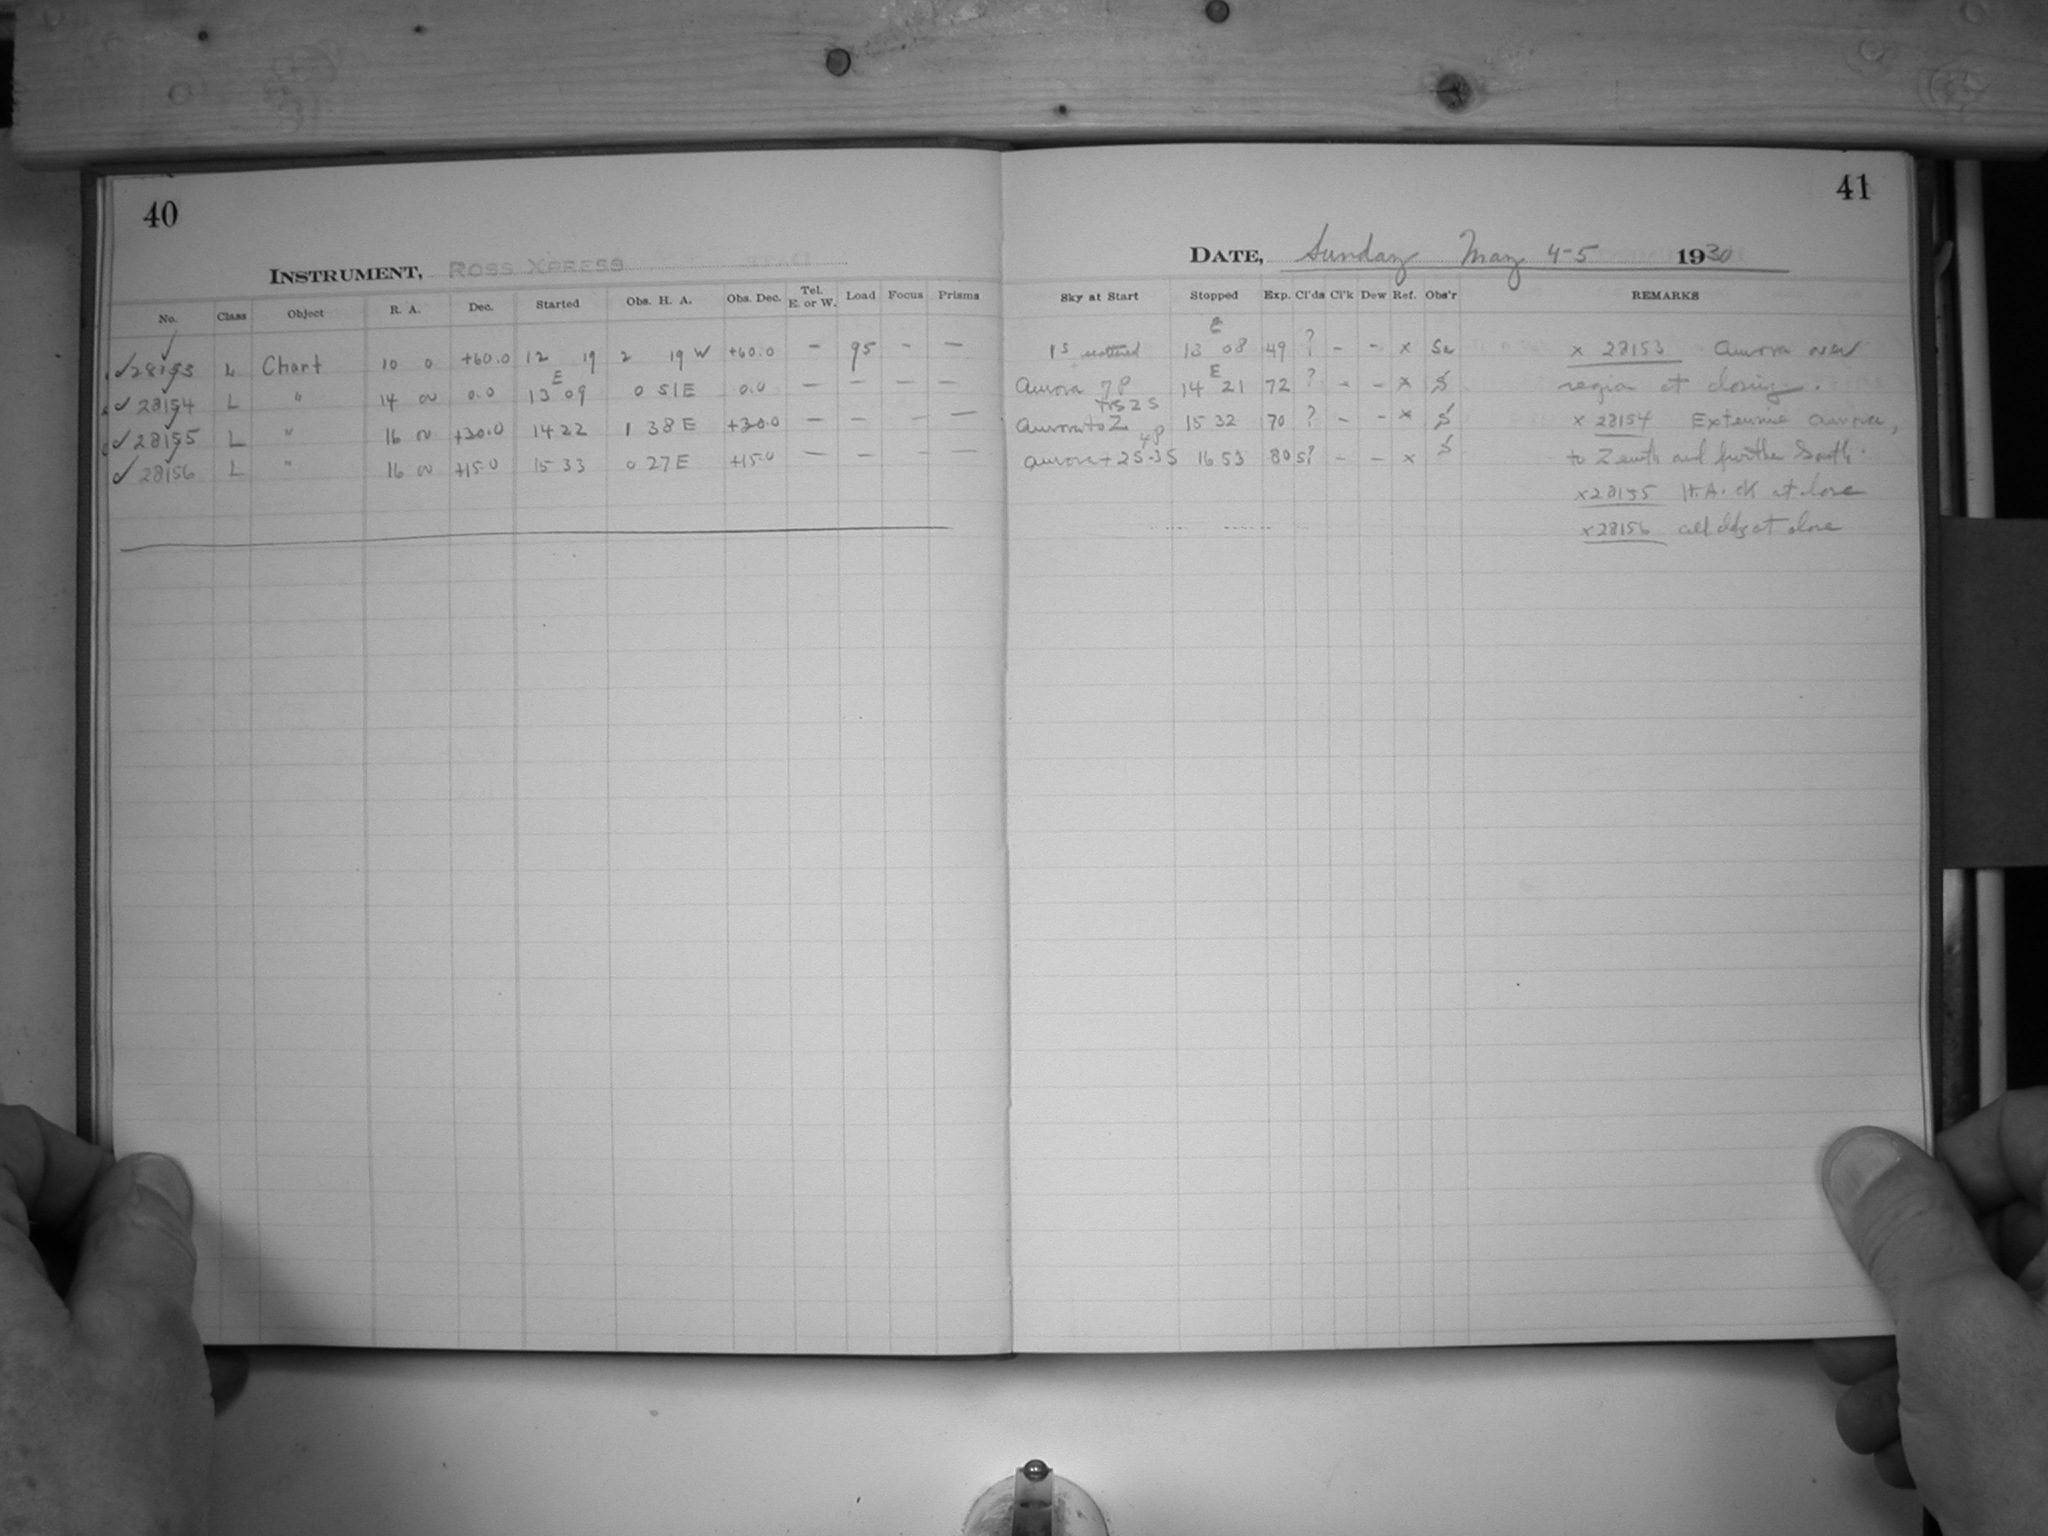 40
INSTRUMENT, ROSS XPRESS
No. Class Object R. A. Dec. Started Obs. H. A. Obs. Dec. Tel. E. or W. Load Focus Prisms
✓28153 L Chart 10 0 +60.0 12 19 2 19 W +60.0 — 95 - —
✓ 28154 L " 14 0 0.0 13 E 09 0 51 E 0.0 — — — —
✓ 28155 L " 16 0 +30.0 14 22 1 38 E +30.0 — — - —
✓ 28156 L " 16 0 +15.0 15 33 0 27 E +15.0 — — - —
41
DATE, Sunday May 4-5 1930
Sky at Start Stopped Exp. Cl'ds Cl'k Dew Ref. Obs'r REMARKS
1S scattered 13 E 08 49 ? - - x x 28153 Aurora over
Aurora 7P 14 E 21 72 ? - - x S region at closing.
Aurora to Z 15 32 70 ? - - x S x 28154 Extensive aurora,
4P
aurora + 2S-3S 16 53 80 5? - - x S to Zenith and further South.
x 28155 H.A. OK at close
x 28156 at close